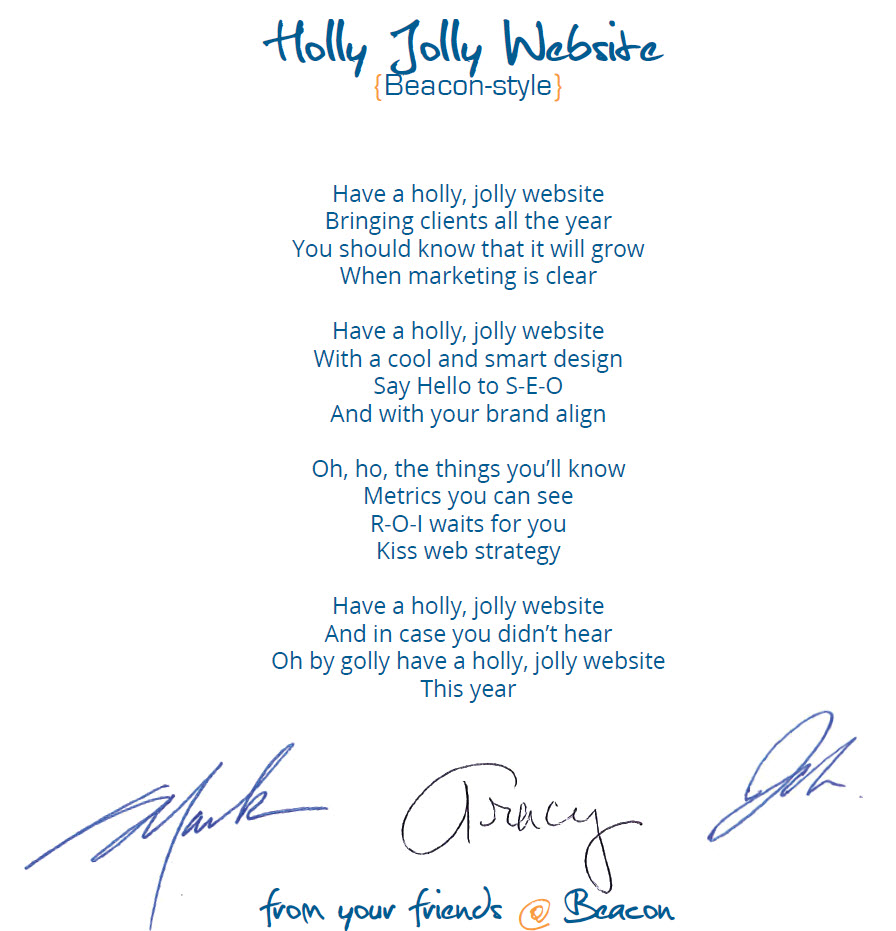 Holly Jolly Website
{Beacon-style}
Have a holly, jolly website
Bringing clients all the year
You should know that it will grow
When marketing is clear
Have a holly, jolly website
With a cool and smart design
Say Hello to S-E-O
And with your brand align
Oh, ho, the things you’ll know
Metrics you can see
R-O-I waits for you
Kiss web strategy
Have a holly, jolly website
And in case you didn’t hear
Oh by golly have a holly, jolly website
This year
Mark Tracy
from your friends @ Beacon